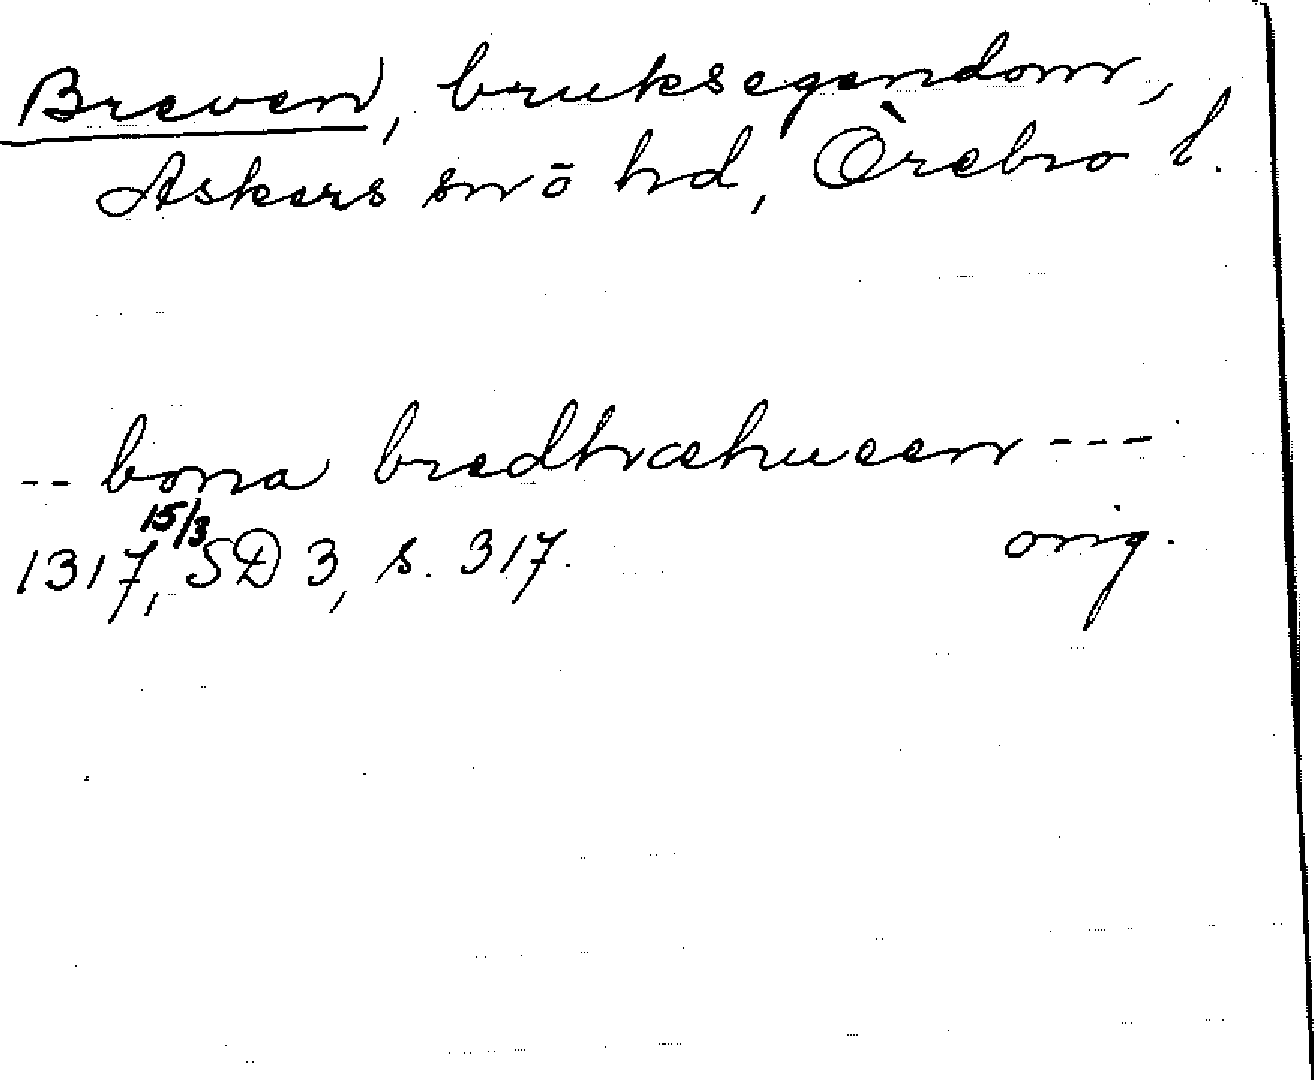 Breven, bruksegendom,
Askers sn o hd, Örebro l.
-- bona bredhvæhueen ---
1317 15/3, SD 3, s. 317. orig.